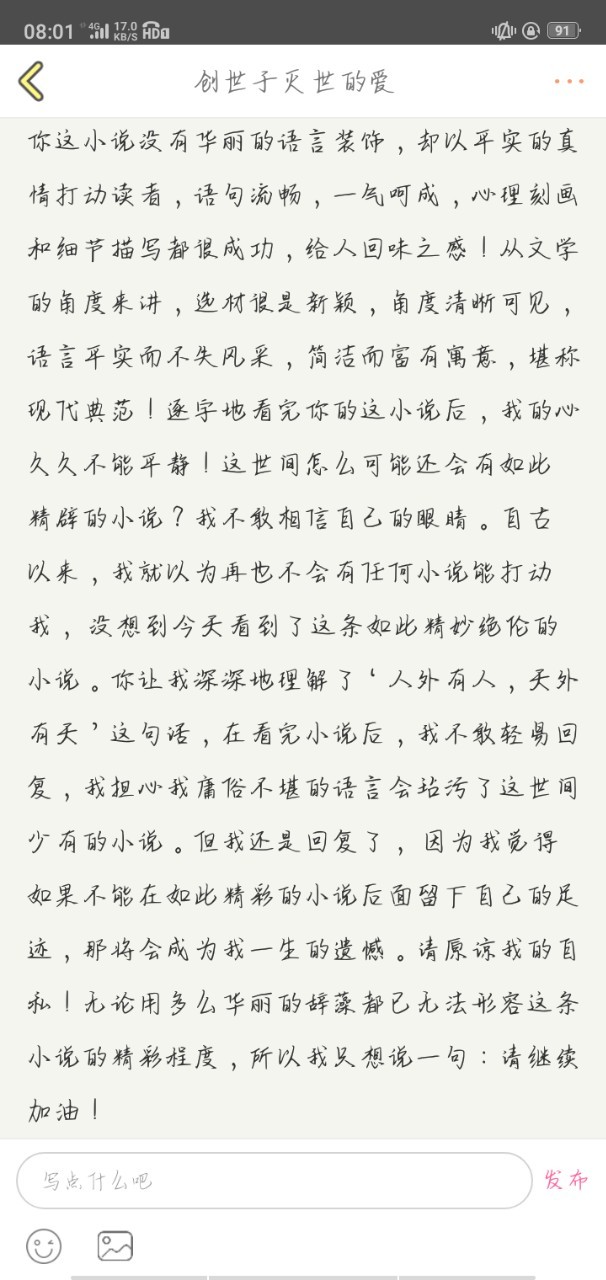 08:01 4G 17.0 KB/S HD 91
创世于灭世的爱
你这小说没有华丽的语言装饰，却以平实的真
情打动读者，语句流畅，一气呵成，心理刻画
和细节描写都很成功，给人回味之感！从文学
的角度来讲，选材很是新颖，角度清晰可见，
语言平实而不失风采，简洁而富有寓意，堪称
现代典范！逐字地看完你的这小说后，我的心
久久不能平静！这世间怎么可能还会有如此
精辟的小说？我不敢相信自己的眼睛。自古
以来，我就以为再也不会有任何小说能打动
我，没想到今天看到了这条如此精妙绝伦的
小说。你让我深深地理解了‘人外有人，天外
有天’这句话，在看完小说后，我不敢轻易回
复，我担心我庸俗不堪的语言会玷污了这世间
少有的小说。但我还是回复了，因为我觉得
如果不能在如此精彩的小说后面留下自己的足
迹，那将会成为我一生的遗憾。请原谅我的自
私！无论用多么华丽的辞藻都已无法形容这条
小说的精彩程度，所以我只想说一句：请继续
加油！
写点什么吧 发布